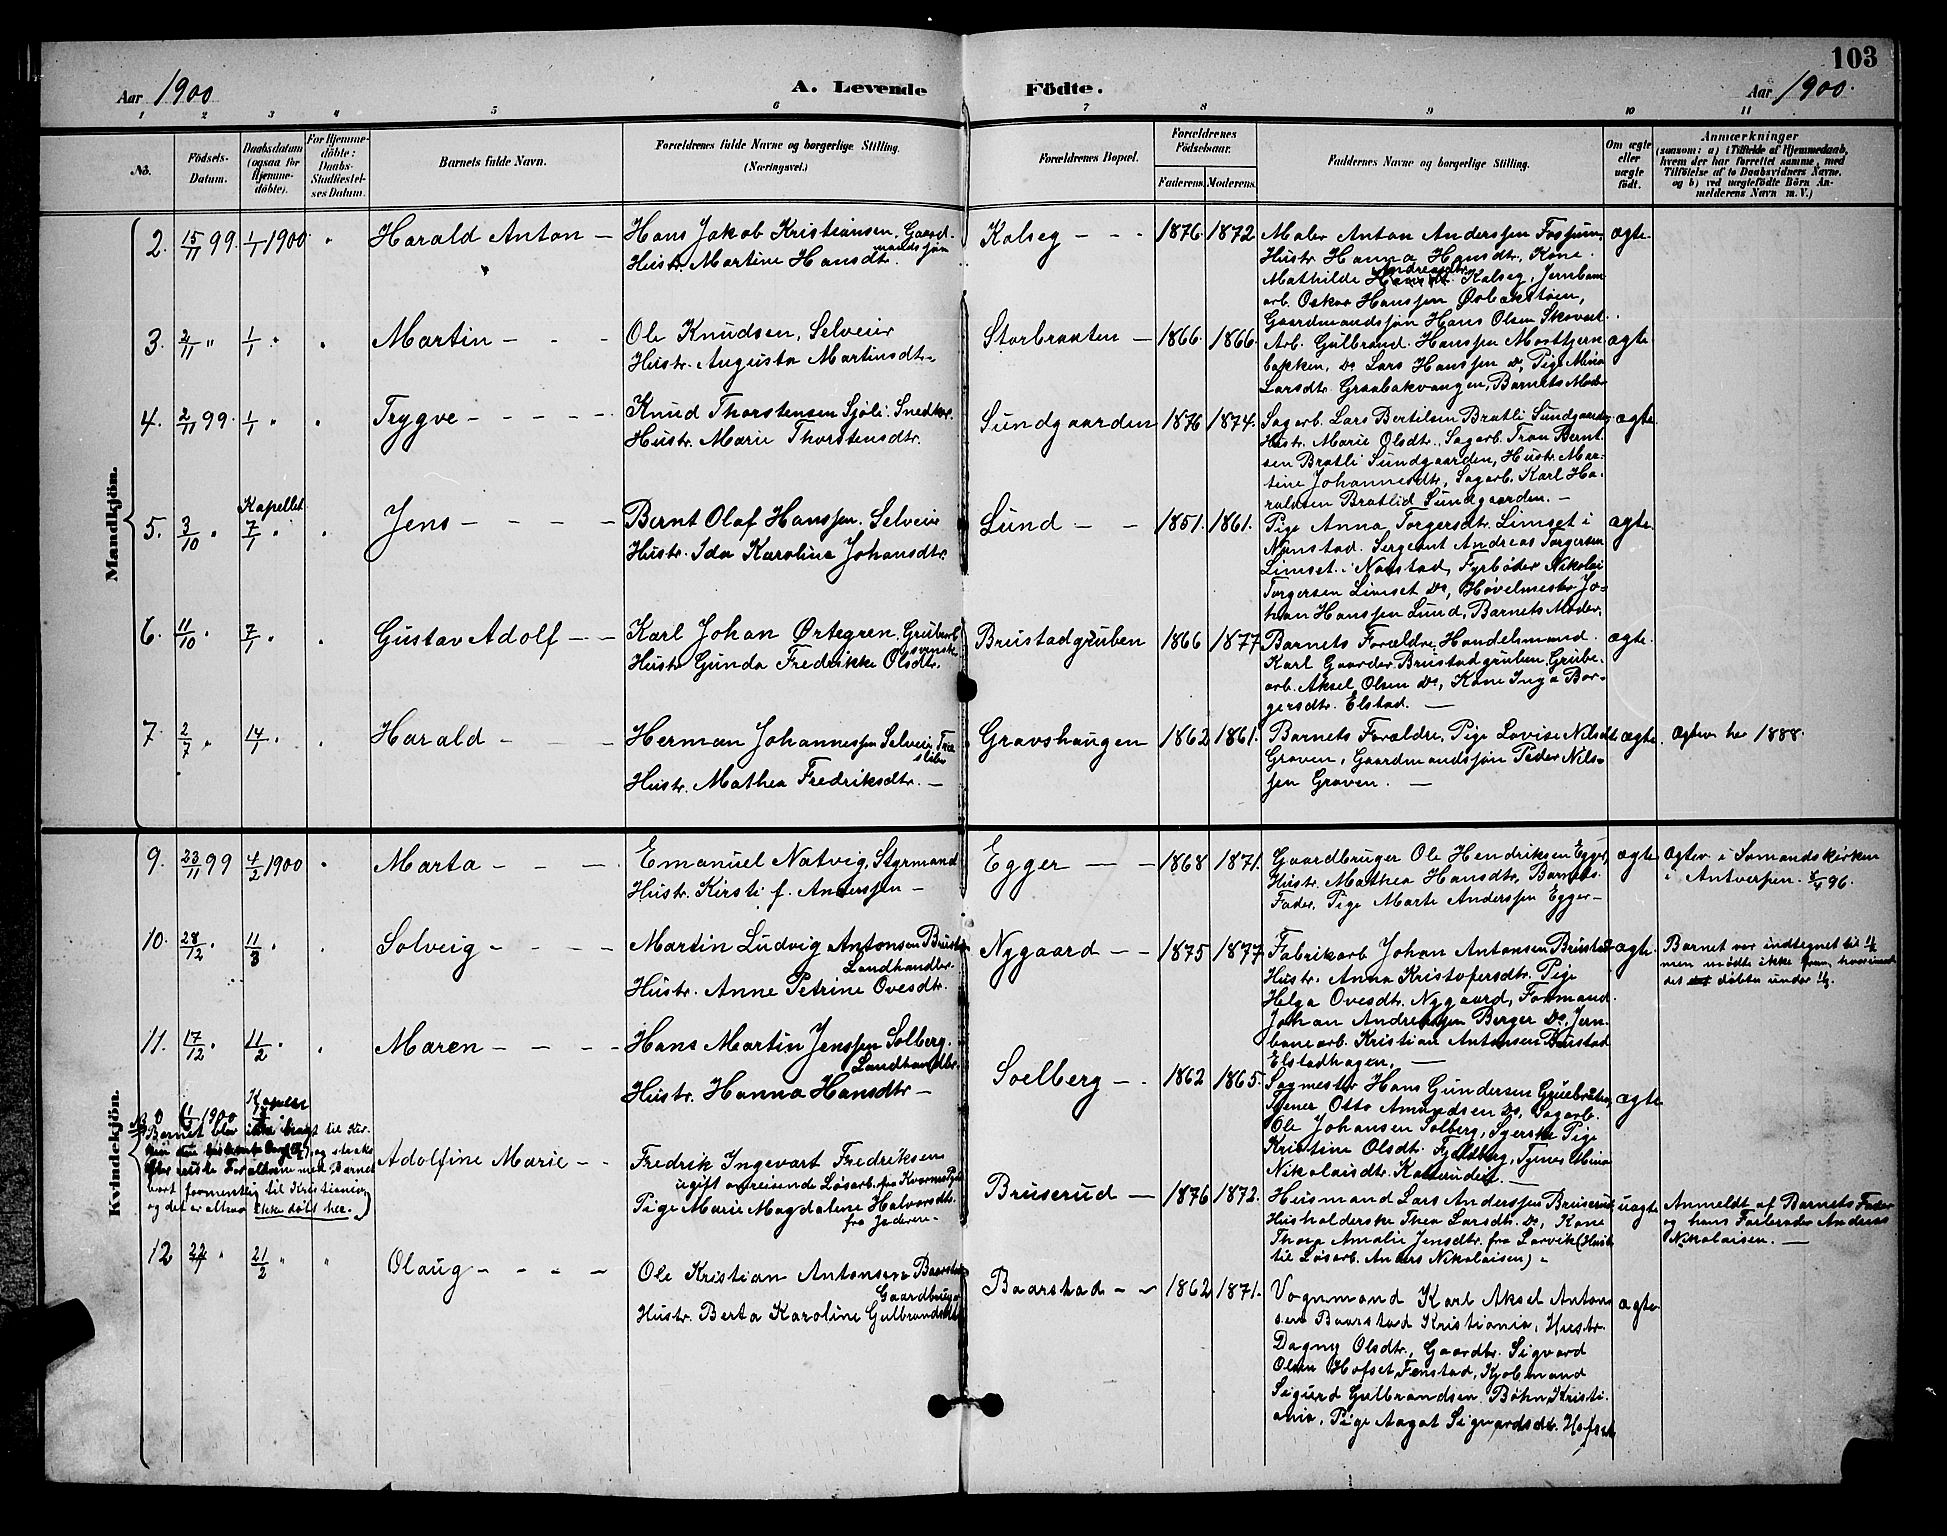 103
Aar 1900
A. Levende
Födte.
Aar 1900.
1 2 3 4 5 6 7 8 9 10 11
No.
Födsels-
Datum.
Daabsdatum
(ogsaa for
Hjemme-
döbte).
For Hjemme-
döbte:
Daabs-
Stadfæstel-
ses Datum.
Barnets fulde Navn.
Forældrenes fulde Navne og borgerlige Stilling.
(Næringsvei.)
Forældrenes Bopæl.
Forældrenes
Födselsaar.
Faderens. Moderens.
Faddernes Navne og borgerlige Stilling.
Om ægte
eller
uægte
födt.
Anmærkninger
(saasom: a) i Tilfælde af Hjemmedaab,
hvem der har forrettet samme, med
Tilföielse af to Daabsvidners Navne.
og b) ved uægtefödte Börn An-
melderens Navn m. V.)
Mandkjön.
2. 15/11 99. 1/1 1900. " Harald Anton —
Hans Jakob Kristiansen, Gaard-
mandssøn
Hustr. Martine Hansdtr.
Kalseg - - - 1876. 1872.
Maler Anton Anderssen Fossum,
Hustr. Hanna Hansdtr, Kone
Mathilde Andreasdtr. Kalseg, Jernbane
arb. Oskar Hanssen Ørbækstøen,
Gaardmandssøn Hans Olsen Skovset.
ægte.
3. 2/11 " 1/1 " " Martin - - -
Ole Knudsen, Selveier
Hustr. Augusta Martinsdtr.
Storbraaten — 1866. 1866.
Arb. Gulbrand Hanssen Mosttjern
bakken, Do Lars Hanssen Do, Pige Mina
Larsdtr. Graabækvangen, Barnets Moder
ægte.
4. 2/11 99. 1/1 " " Trygve - - - - -
Knud Thorstensen Sjöli, Snedker.
Hustr. Marie Thorstensdtr.
Sundgaarden 1876 1874.
Sagarb. Lars Bertilsen Bratli Sundgaarden,
Hustr. Marie Olsdtr., Sagarb. Tron Bernt
sen Bratli Sundgaarden, Hustr. Mar-
tine Johannesdtr, Sagarb. Karl Ha-
raldsen Bratlid Sundgaarden. —
ægte.
5. 3/10 " Kapellet
7/1 " " Jens - - - -
Bernt Olaf Hanssen, Selveier
Hustr. Ida Karoline Johansdtr.
Lund - - 1851. 1861.
Pige Anna Torgersdtr. Limset i
Nanstad. Sergeant Andreas Torgersen
Limset i Nanstad, Fyrbøder Nikolai
Torgersen Limset Do, Høvelmester Jo-
han Hanssen Lund, Barnets Moder.
ægte.
6. 11/10 " 7/1 " " Gustav Adolf - -
Karl Johan Ørtegren, Grubearb.
svensk
Hustr. Gunda Fredrikke Olsdtr.
Brustadgruben 1866 1877
Barnets Forældre, Handelsmand
Karl Gaarder Brustadgruben, Grube-
arb. Aksel Olsen Do, Kone Inga Bor-
gersdtr. Elstad. —
ægte.
7. 2/7 " 14/1 " " Harald - - -
Herman Johannessen Selveier
Hustr. Mathea Fredriksdtr. —
Gravshaugen 1862 1861.
Barnets Forældre, Pige Lovise Nilsdtr.
Graven, Gaardmandssøn Peder Nils-
sen Graven. —
ægte. Ægtev. her 1888.
Kvindekjön.
9. 23/11 99 4/2 1900 " Marta - - -
Emanuel Natvig, Styrmand
Hustr. Kirsti f. Anderssen —
Egger — — 1868 1871.
Gaardbruger Ole Hendriksen Egger,
Hustr. Mathea Hansdtr, Barnets
Fader, Pige Marte Anderssen Egger —
ægte Ægtev. i Sømandskirken
i Antverpen 96.
10. 28/12 " 11/3 " Solveig - - - -
Martin Ludvig Antonsen Brustad
Landhandler.
Hustr. Anne Petrine Ovesdtr.
Nygaard - - 1875 1877
Fabrikarb. Johan Antonsen Brustad
Hustr. Anna Kristofersdtr. Pige
Helga Ovesdtr. Nygaard, Formand
Johan Andreassen Berger Do, Jern-
banearb. Kristian Antonsen Brustad
Elstadhagen. —
ægte. Barnet var indtegnet til 11/2
men mödte ikke frem, hvorimod
det döbtes under 11/3.
11. 17/12 " 11/2 " " Maren - - - -
Hans Martin Jenssen Solberg.
Landhandler.
Hustr. Hanna Hansdtr —
Soelberg - . 1862 1865.
Sagmester Hans Gundersen Gruebraaten,
Tjener Otto Amundsen Do, Sagarb.
Ole Johansen Solberg, Syerske Pige
Kristine Olsdtr. Fjeldberg, Tjenes. Mina
Nikolaisdtr. Kalserudeie. —
ægte
No 0 6/1 1900 Kapellet
Barnet blev ikke bragt til Kir-
og straks
reiste Forældrene med Barnet
bort formentlig til Kristiania,
og det er altsaa ikke døbt her.)
Adolfine Marie - -
Fredrik Ingevart Fredriksen
ugift omreisende Løsarb. fra
Pige Marie Magdalene Halvorsdtr.
fra Jæderen —
Bruserud — 1876 1872.
Husmand Lars Anderssen Bruserud
Husholderske Thea Larsdtr. Do, Kone
Thora Amalie Jensdtr. fra Larvik (Hustr.
til Løsarb. Anders Nikolaisen) —
uægte Anmeldt af Barnets Fader
og hans Forlover Anders
Nikolaisen. —
12 22/ " 21/2 " " Olaug - - - -
Ole Kristian Antonsen Baarstad
Gaardbruger
Hustr. Berta Karoline Gulbrandsdtr.
Baarstad - - 1862 1871.
Vognmand Karl Aksel Anton
sen Baarstad Kristiania, Hustr.
Dagny Olsdtr., Gaardbr. Sigvard
Olsen Hofset, Fenstad, Kjøbmand
Sigurd Gulbrandsen Bøhn, Kristi-
ania, Pige Aagot Sigvardsdtr. Hofset
ægte